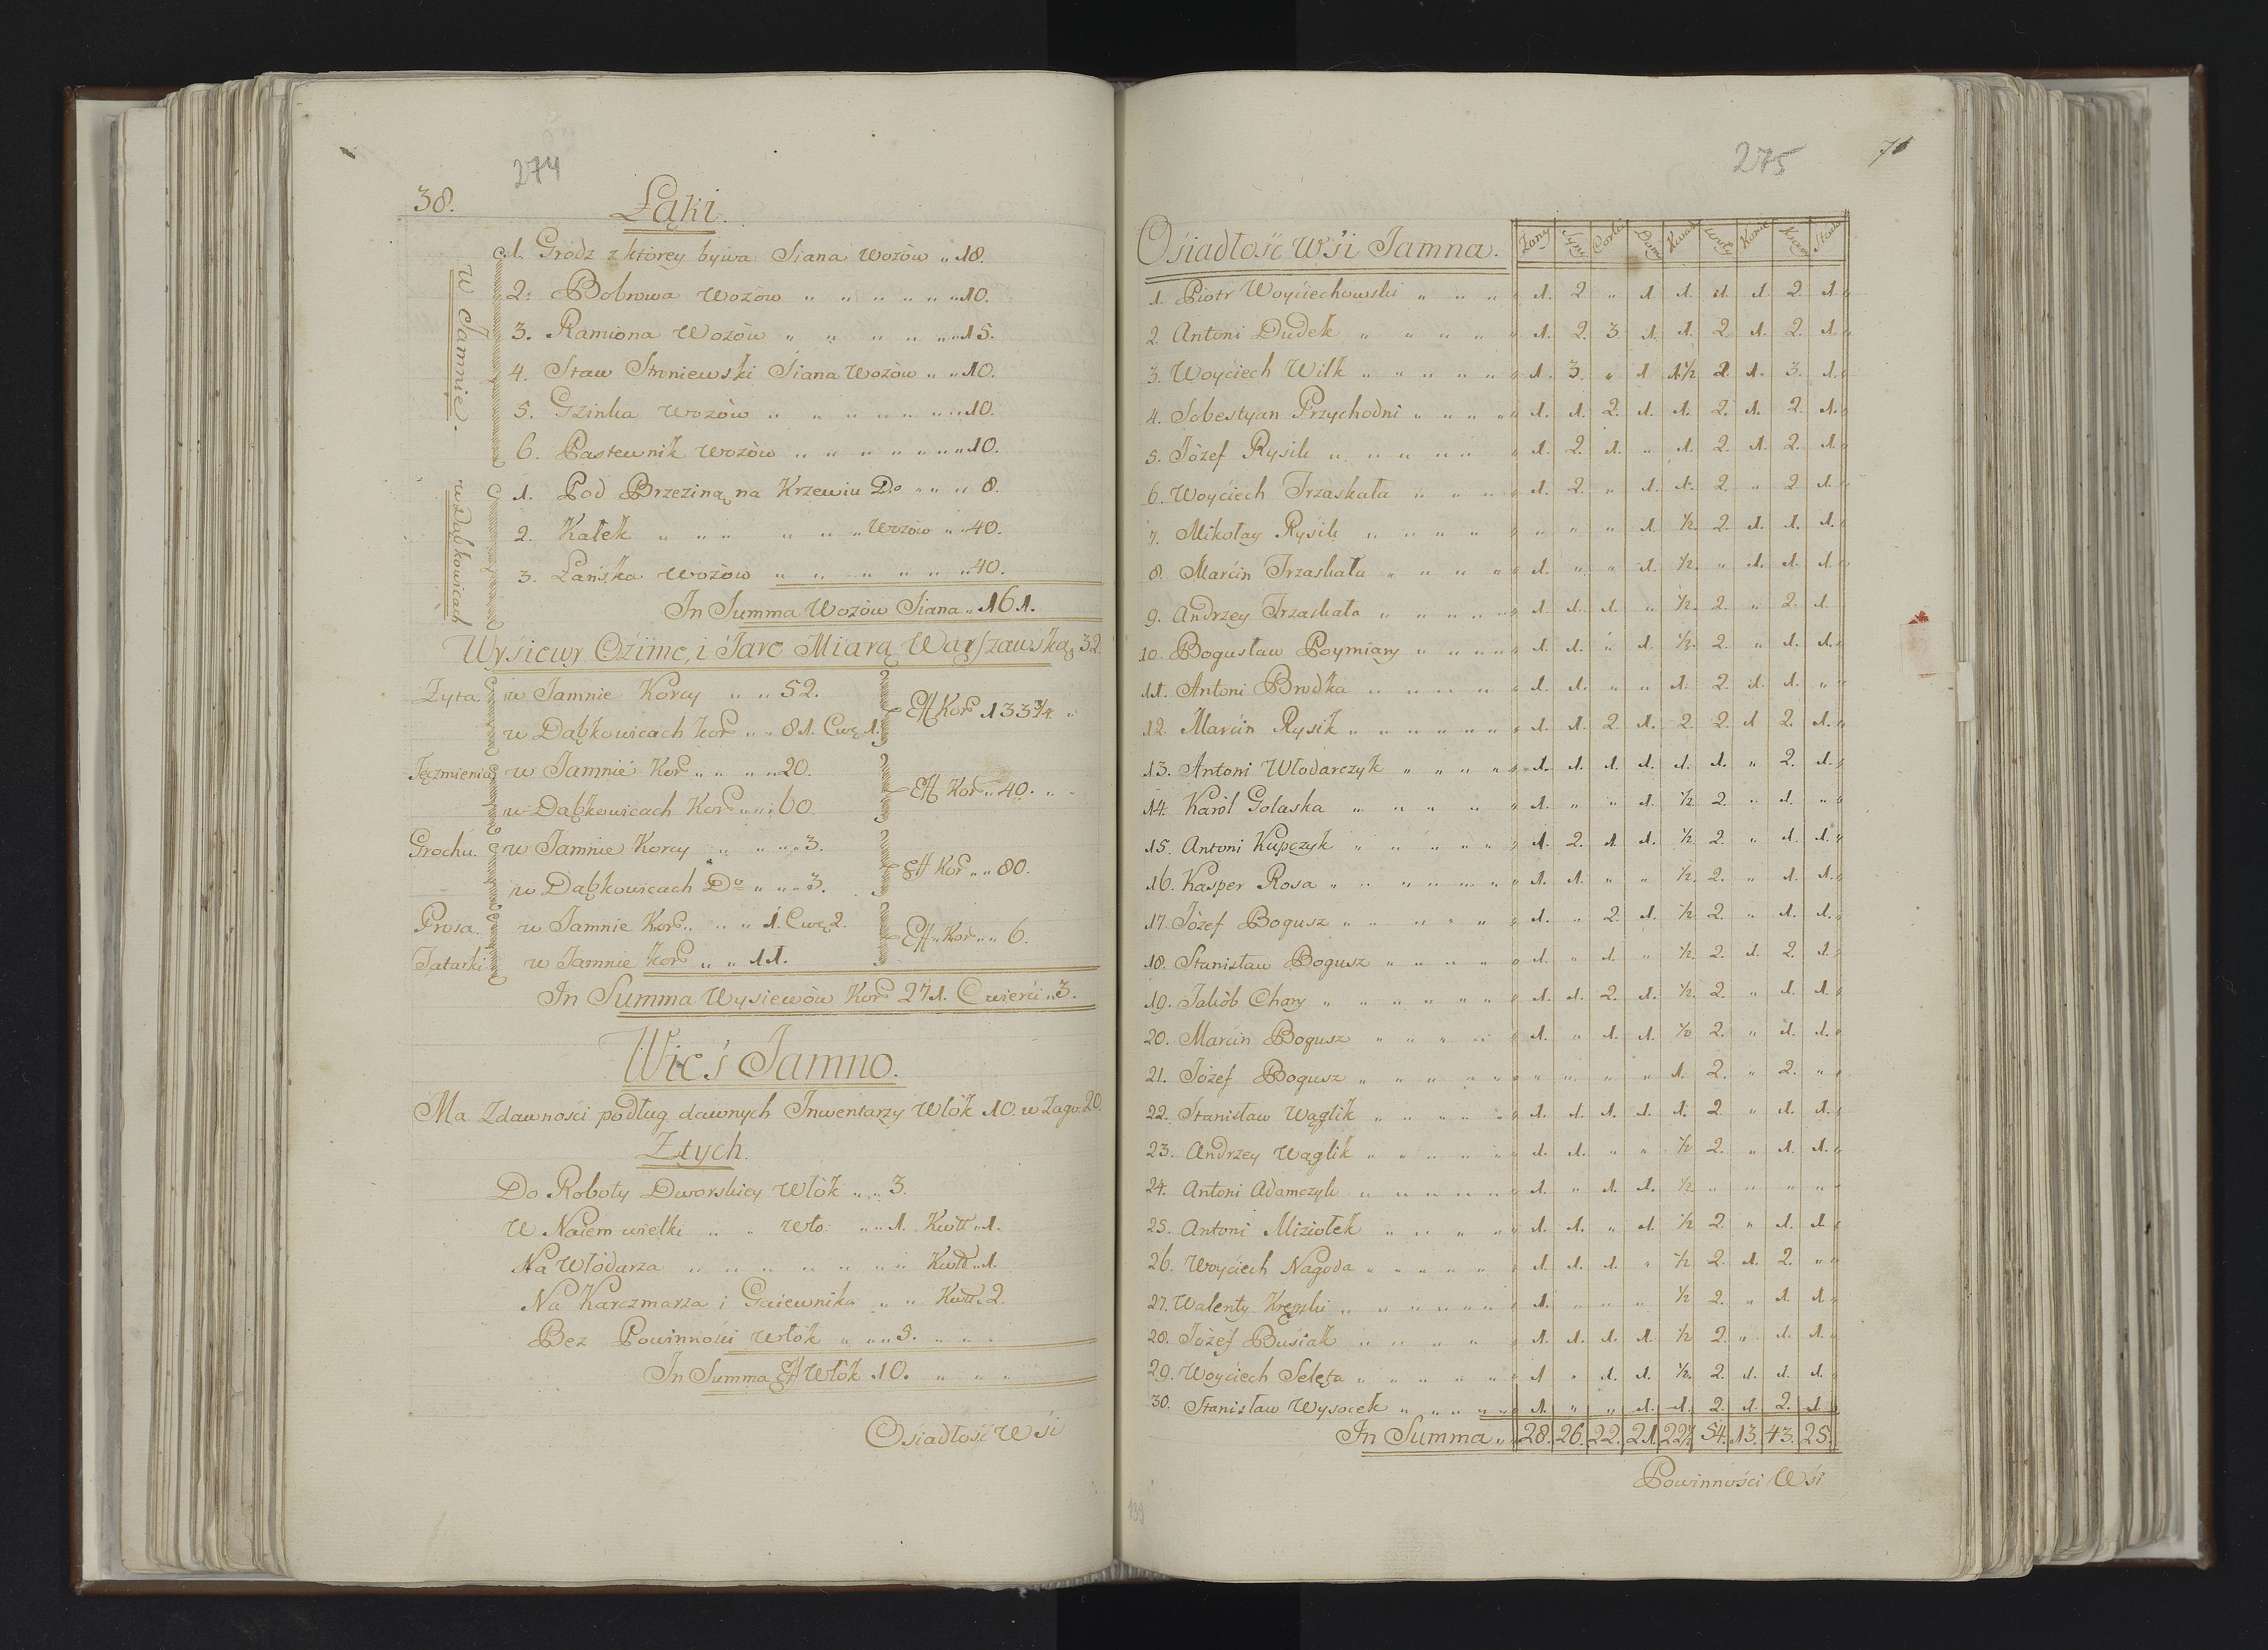 274
38.
Łąki.
W Jamnie.
1. Grodz z ktorey bywa Siana Wozow „ 18.
2. Bobrowa Wozow „ „ „ „ „ „ 10.
3. Ramiona Wozów „ „ „ „ „ „ 15.
4. Staw Siana Wozów „ „ 10.
5. Gzinka Wozów „ „ „ „ „ „ „ 10.
6. Pastewnik Wozów „ „ „ „ „ „ „ 10.
w Dąbkowicach
1. Pod Brzeziną na Krzewiu Do „ „ „ 8.
2. Kałek „ „ „ „ „ „ Wozów „ „ 40.
3. Łańska Wozów „ „ „ „ „ „ „ 40.
In Summa Wozów Siana „ 161.
Wysiewy Ozime, i Jare Miarą Warszawską 32.
Żyta w Jamnie Korcy „ „ 52.
w Dąbkowicach Kor „ „ 81. Cwę 1. Eff Kor 133 3/4 „
Jęczmienia w Jamnie Kor „ „ „ „ 20.
w Dąbkowicach Kor „ „ „ 60. Eff Kor „ 40. „ „
Grochu. w Jamnie Korcy „ „ „ „ 3.
w Dąbkowicach Do „ „ „ 3. Eff Kor „ „ 80.
Prosa. w Jamnie Kor „ „ „ 1. Cwę 2. Eff „ Kor „ „ 6.
Tatarki w Jamnie Kor „ „ 11.
In Summa Wysiewów Kor 271. Cwierci „ 3.
Wieś Jamno.
Ma Zdawności podług dawnych Inwentarzy Włók 10. w Zago: 20.
Z tych.
Do Roboty Dworskiey Włók „ „ 3.
W Naiem wielki „ „ Wło: „ „ 1. Kwtt „ 1.
Na Włodarza „ „ „ „ „ „ „ Kwtt „ 1.
Na Karczmarza i Gaiewnika „ „ Kwtt 2.
Bez Powinności Włók „ „ „ 5. „ „ „
In Summa Eff Włók 10. „ „ „
Osiadłość Wsi
275
71
Osiadłość Wsi Jamna. Żony Syny Corki Domy Kwart Woły Konie Krow Staw
1. Piotr Woyciechowski „ „ „ „ 1. 2. „ 1. 1. 1. 1. 2. 1. „
2. Antoni Dudek „ „ „ „ „ 1. 2. 3. 1. 1. 2. 1. 2. 1. „
3. Woyciech Wilk „ „ „ „ „ „ 1. 3. „ 1 1 1/2 2. 1. 3. 1. „
4. Sobestyan Przychodni „ „ „ „ „ 1. 1. 2. 1. 1. 2. 1. 2. 1. „
5. Józef Rysik „ „ „ „ „ „ 1. 2. 1. „ 1. 2. 1. 2. 1. „
6. Woyciech Trzaskała „ „ „ „ 1. 2. „ 1. 1. 2. „ 2 1. „
7. Mikołay Rysik „ „ „ „ „ „ „ „ 1. 1/2. 2. 1. 1. 1. „
8. Marcin Trzaskała „ „ „ „ „ 1. „ „ 1. 1/2. „ 1. 1. 1. „
9. Andrzey Trzaskała „ „ „ „ „ „ 1. 1. 1. „ 1/2. 2. „ 2. 1.
10. Bogusław Poymiany „ „ „ „ „ 1. 1. „ 1. 1/2. 2. „ 1. 1. „
11. Antoni Brodka „ „ „ „ „ „ 1. 1. „ „ 1. 2. 1. 1. „ „
12. Marcin Rysik „ „ „ „ „ „ „ 1. 1. 2. 1. 2. 2. 1 2. 1. „
13. Antoni Włodarczyk „ „ „ „ „ 1. 1. 1. 1. 1. 1. „ 2. 1. „
14. Karol Golaska „ „ „ „ „ „ 1. „ „ 1. 1/2. 2. „ 1. „ „
15. Antoni Kupczyk „ „ „ „ „ „ 1. 2. 1. 1. 1/2. 2. „ 1. 1. „
16. Kasper Rosa „ „ „ „ „ „ „ 1. 1. „ „ 1/2. 2. „ 1. 1. „
17. Józef Bogusz „ „ „ „ „ „ 1. „ 2. 1. 1/2 2. „ 1. 1. „
18. Stanisław Bogusz „ „ „ „ „ „ 1. „ 1. „ 1/2. 2. 1. 2. 1. „
19. Jakób Chary „ „ „ „ „ „ „ 1. 1. 2. 1. 1/2. 2. „ 1. 1. „
20. Marcin Bogusz „ „ „ „ „ 1. „ 1. 1. 1/2 2. „ 1. 1. „
21. Józef Bogusz „ „ „ „ „ „ „ „ „ „ 1. 2. „ 2. „ „
22. Stanisław Wąglik „ „ „ „ „ „ 1. 1. 1. 1. 1. 2 „ 1. 1. „
23. Andrzey Wąglik „ „ „ „ „ „ 1. 1. „ „ 1/2 2. „ 1. 1. „
24. Antoni Adamczyk „ „ „ „ „ „ 1. „ 1. 1. 1/2. „ „ „ „ „
25. Antoni Miziołek „ „ „ „ „ 1. 1. „ 1. 1/2 2. „ 1. 1. „
26. Woyciech Nagoda „ „ „ „ „ „ 1. 1. 1. „ 1/2 2. 1. 2. „ „
27. Walenty „ „ „ „ „ „ „ 1. „ „ „ 1/2 2. „ 1. 1. „
28. Józef Busiak „ „ „ „ „ 1. 1. 1. 1. 1/2 2. „ 1. 1. „
29. Woyciech Selęta „ „ „ „ „ „ 1 „ 1. 1. 1/2. 2. 1. 1. 1. „
30. Stanisław Wysocek „ „ „ „ „ „ 1. „ „ 1. 1. 2. 1. 2. 1.
In Summa „ „ 28. 26. 22. 21. 22 1/2 54. 13. 43. 25.
Powinności Wsi
139